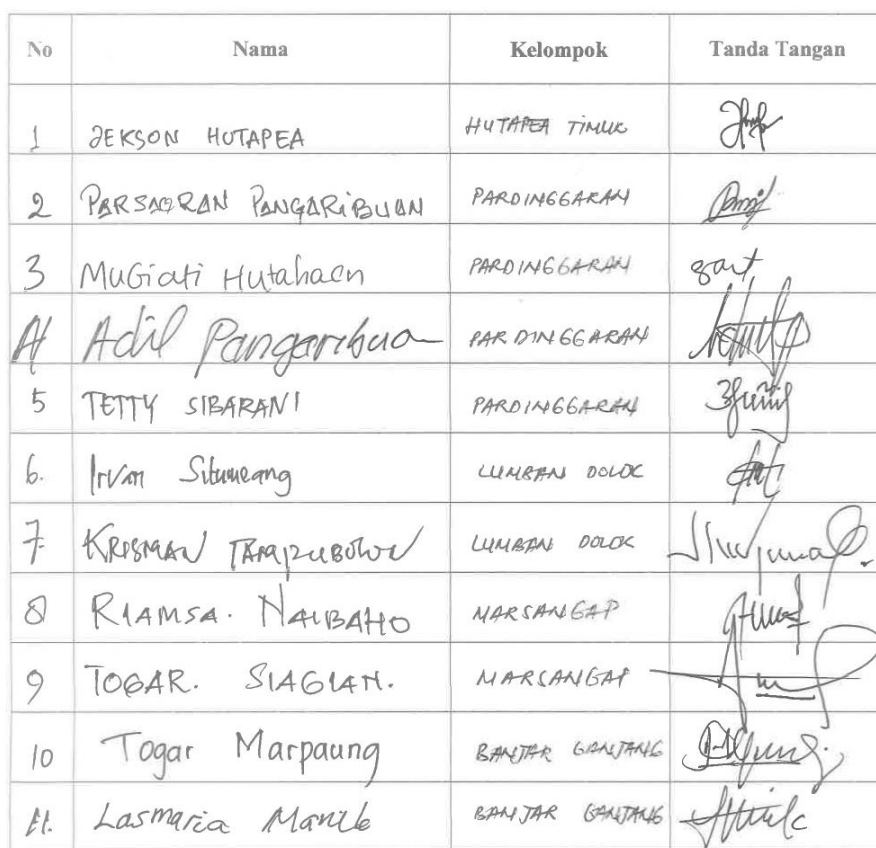 No Nama Kelompok Tanda Tangan
1 JEKSON HUTAPEA HUTAPEA TIMUR
2 PARSAORAN PANGARIBUAN PARDINGGARAN
3 MuGiati Hutahaen PARDINGGARAN
4 Adil Pangaribua PARDINGGARAN
5 TETTY SIBARANI PARDINGGARAN
6. Irvan Situmeang LUMBAN DOLOK
7 KRISMAN TAMPUBOLON LUMBAN DOLOK
8 RIAMSA. NAIBAHO MARSANGAP
9 TOGAR. SIAGIAN. MARSANGAP
10 Togar Marpaung BANJAR GANJANG
11. Lasmaria Manik BANJAR GANJANG